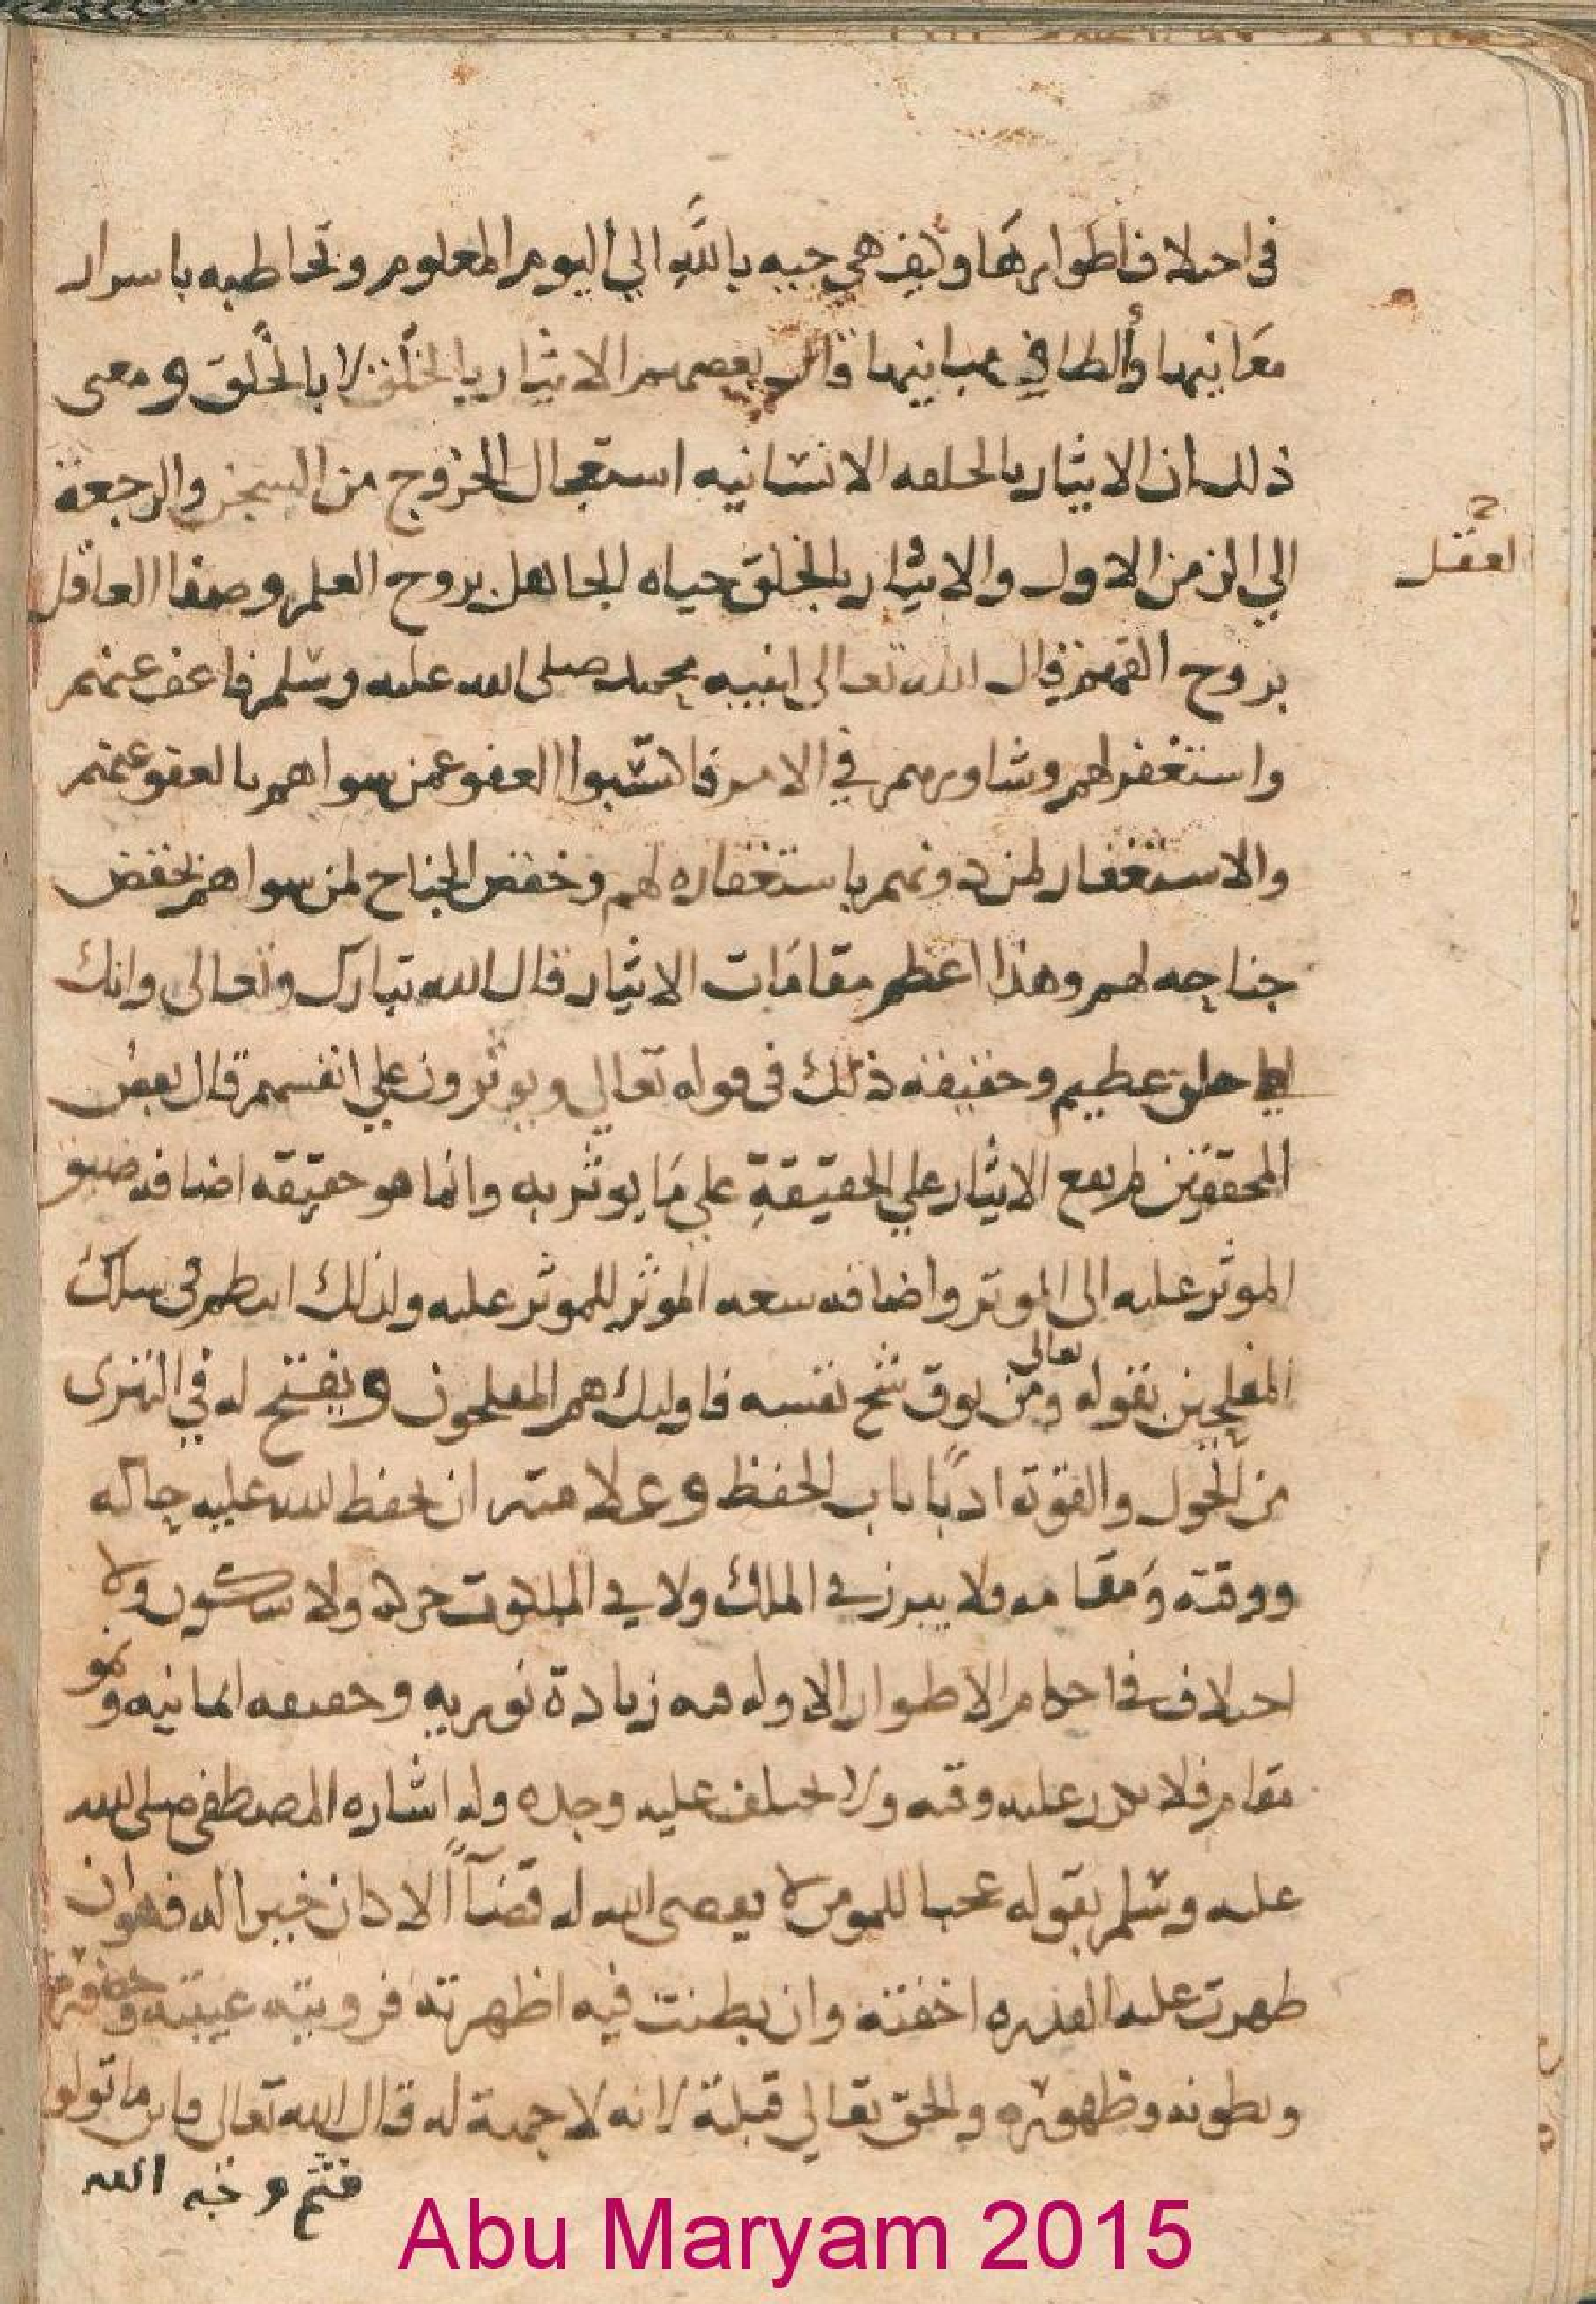 في اختلاف اطوارها وكيف هي حييه بالله الي اليوم المعلوم وتخاطبه باسرار
معانيها والطافي مبانيها قال بعضهم الايثار بالخلق لا بالخلق ومعنى
ذلك ان الايثار بالخلقه الانسانيه استعجال الخروج من السجن والرجعة
الي الزمن الاول والايثار بالخلق حياه الجاهل بروح العلم وصفا العاقل
لعقل
بروح الفهم قال الله تعالى لنبيه محمد صلى الله عليه وسلم فاعف عنهم
واستغفر لهم وشاورهم في الامر فاكتسبوا العفو عمن سواهم بالعفو عنهم
والاستغفار لمن دونهم باستغفاره لهم وخفض الجناح لمن سواهم بخفض
جناحه لهم وهذا اعظم مقامات الايثار قال الله تبارك وتعالى وانك
لعلي خلق عظيم وحقيقة ذلك في قوله تعالي ويوثرون علي انفسهم قال بعض
المحققين لم يقع الايثار علي الحقيقة علي ما يوثر به وانما هو حقيقه اضافه ضيق
الموثر عليه الى الموثر واضافه سعه الموثر للموثر عليه ولذلك انتظم في سلك
المفلحين بقوله تعالى ومن يوق شح نفسه فاوليك هم المفلحون ويفتح له في التبري
من الحول والقوة ادبا باب الحفظ وعلامته ان يحفظ الله عليه حاله
ووقته ومقامه فلا يبرز في الملك ولا في الملكوت حركه ولا سكون ولا
اختلاف في احكام الاطوار الا وله فيه زيادة نوريه وحقيقه ايمانيه ونمو
مقام فلا يكدر عليه وقته ولا يختلف عليه وجده وله اشاره المصطفى صلى الله
عليه وسلم بقوله عجبا للمومن لا يقضى الله له قضآء الا كان خيرا له فهو ان
ظهرت عليه القدره اخفته وان بطنت فيه اظهرته فرويته غيبته وحضوره
وبطونه وظهوره والحق تعالي قبلته لانه لا جهة له قال الله تعالى فاينما تولوا
فثم وجه الله
Abu Maryam 2015